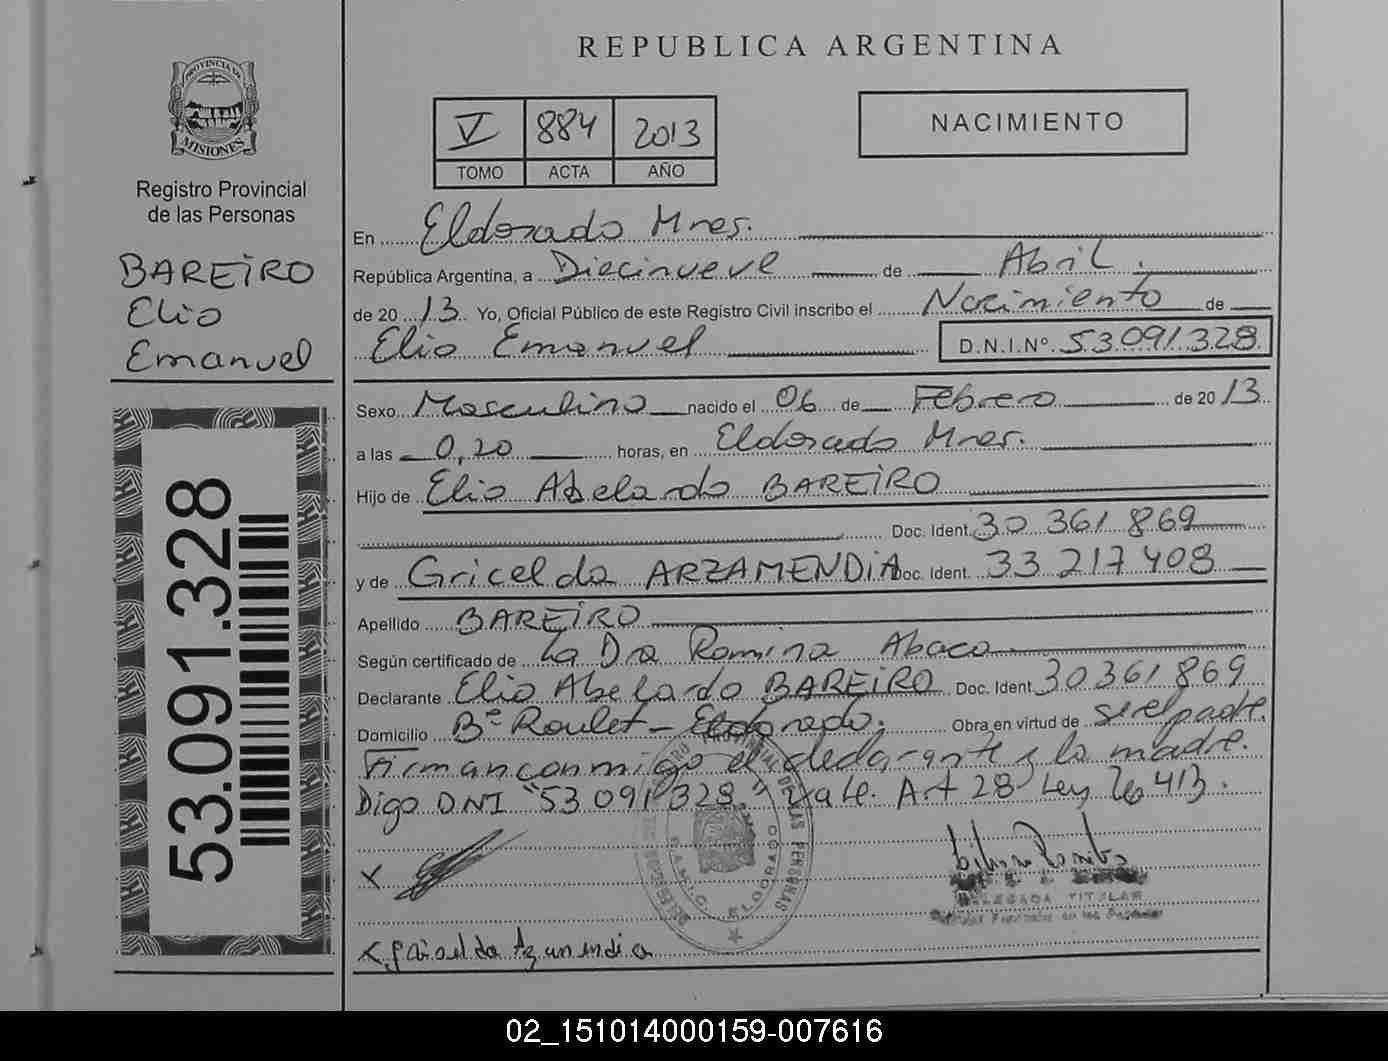 REPUBLICA ARGENTINA
PROVINCIA DE
MISIONES
Registro Provincial
de las Personas
BAREIRO
Elio
Emanuel
53.091.328
V 884 2013
TOMO ACTA AÑO
NACIMIENTO
En Eldorado Mnes.
República Argentina, a Diecinueve de Abril.
de 2013 Yo, Oficial Público de este Registro Civil inscribo el Nacimiento de
Elio Emanuel D.N.I.Nº 53.091.328
Sexo Masculino nacido el 06 de Febrero de 2013
a las 0,20 horas, en Eldorado Mnes.
Hijo de Elio Abelardo BAREIRO
Doc. Ident. 30 361 869
y de Gricelda ARZAMENDIA Doc. Ident. 33 217 408
Apellido BAREIRO
Según certificado de la Dra Romina Abaco
Declarante Elio Abelardo BAREIRO Doc. Ident 30361869
Domicilio Bº Roulet - Eldorado. Obra en virtud de ser el padre.
Firman conmigo el declarante y la madre.
Digo DNI "53 091 328" Vale. Art 28 Ley 26 413.
X
DELEGADA TITULAR
PERSONAS
ELDORADO
X Griselda Arzamendia
02_151014000159-007616